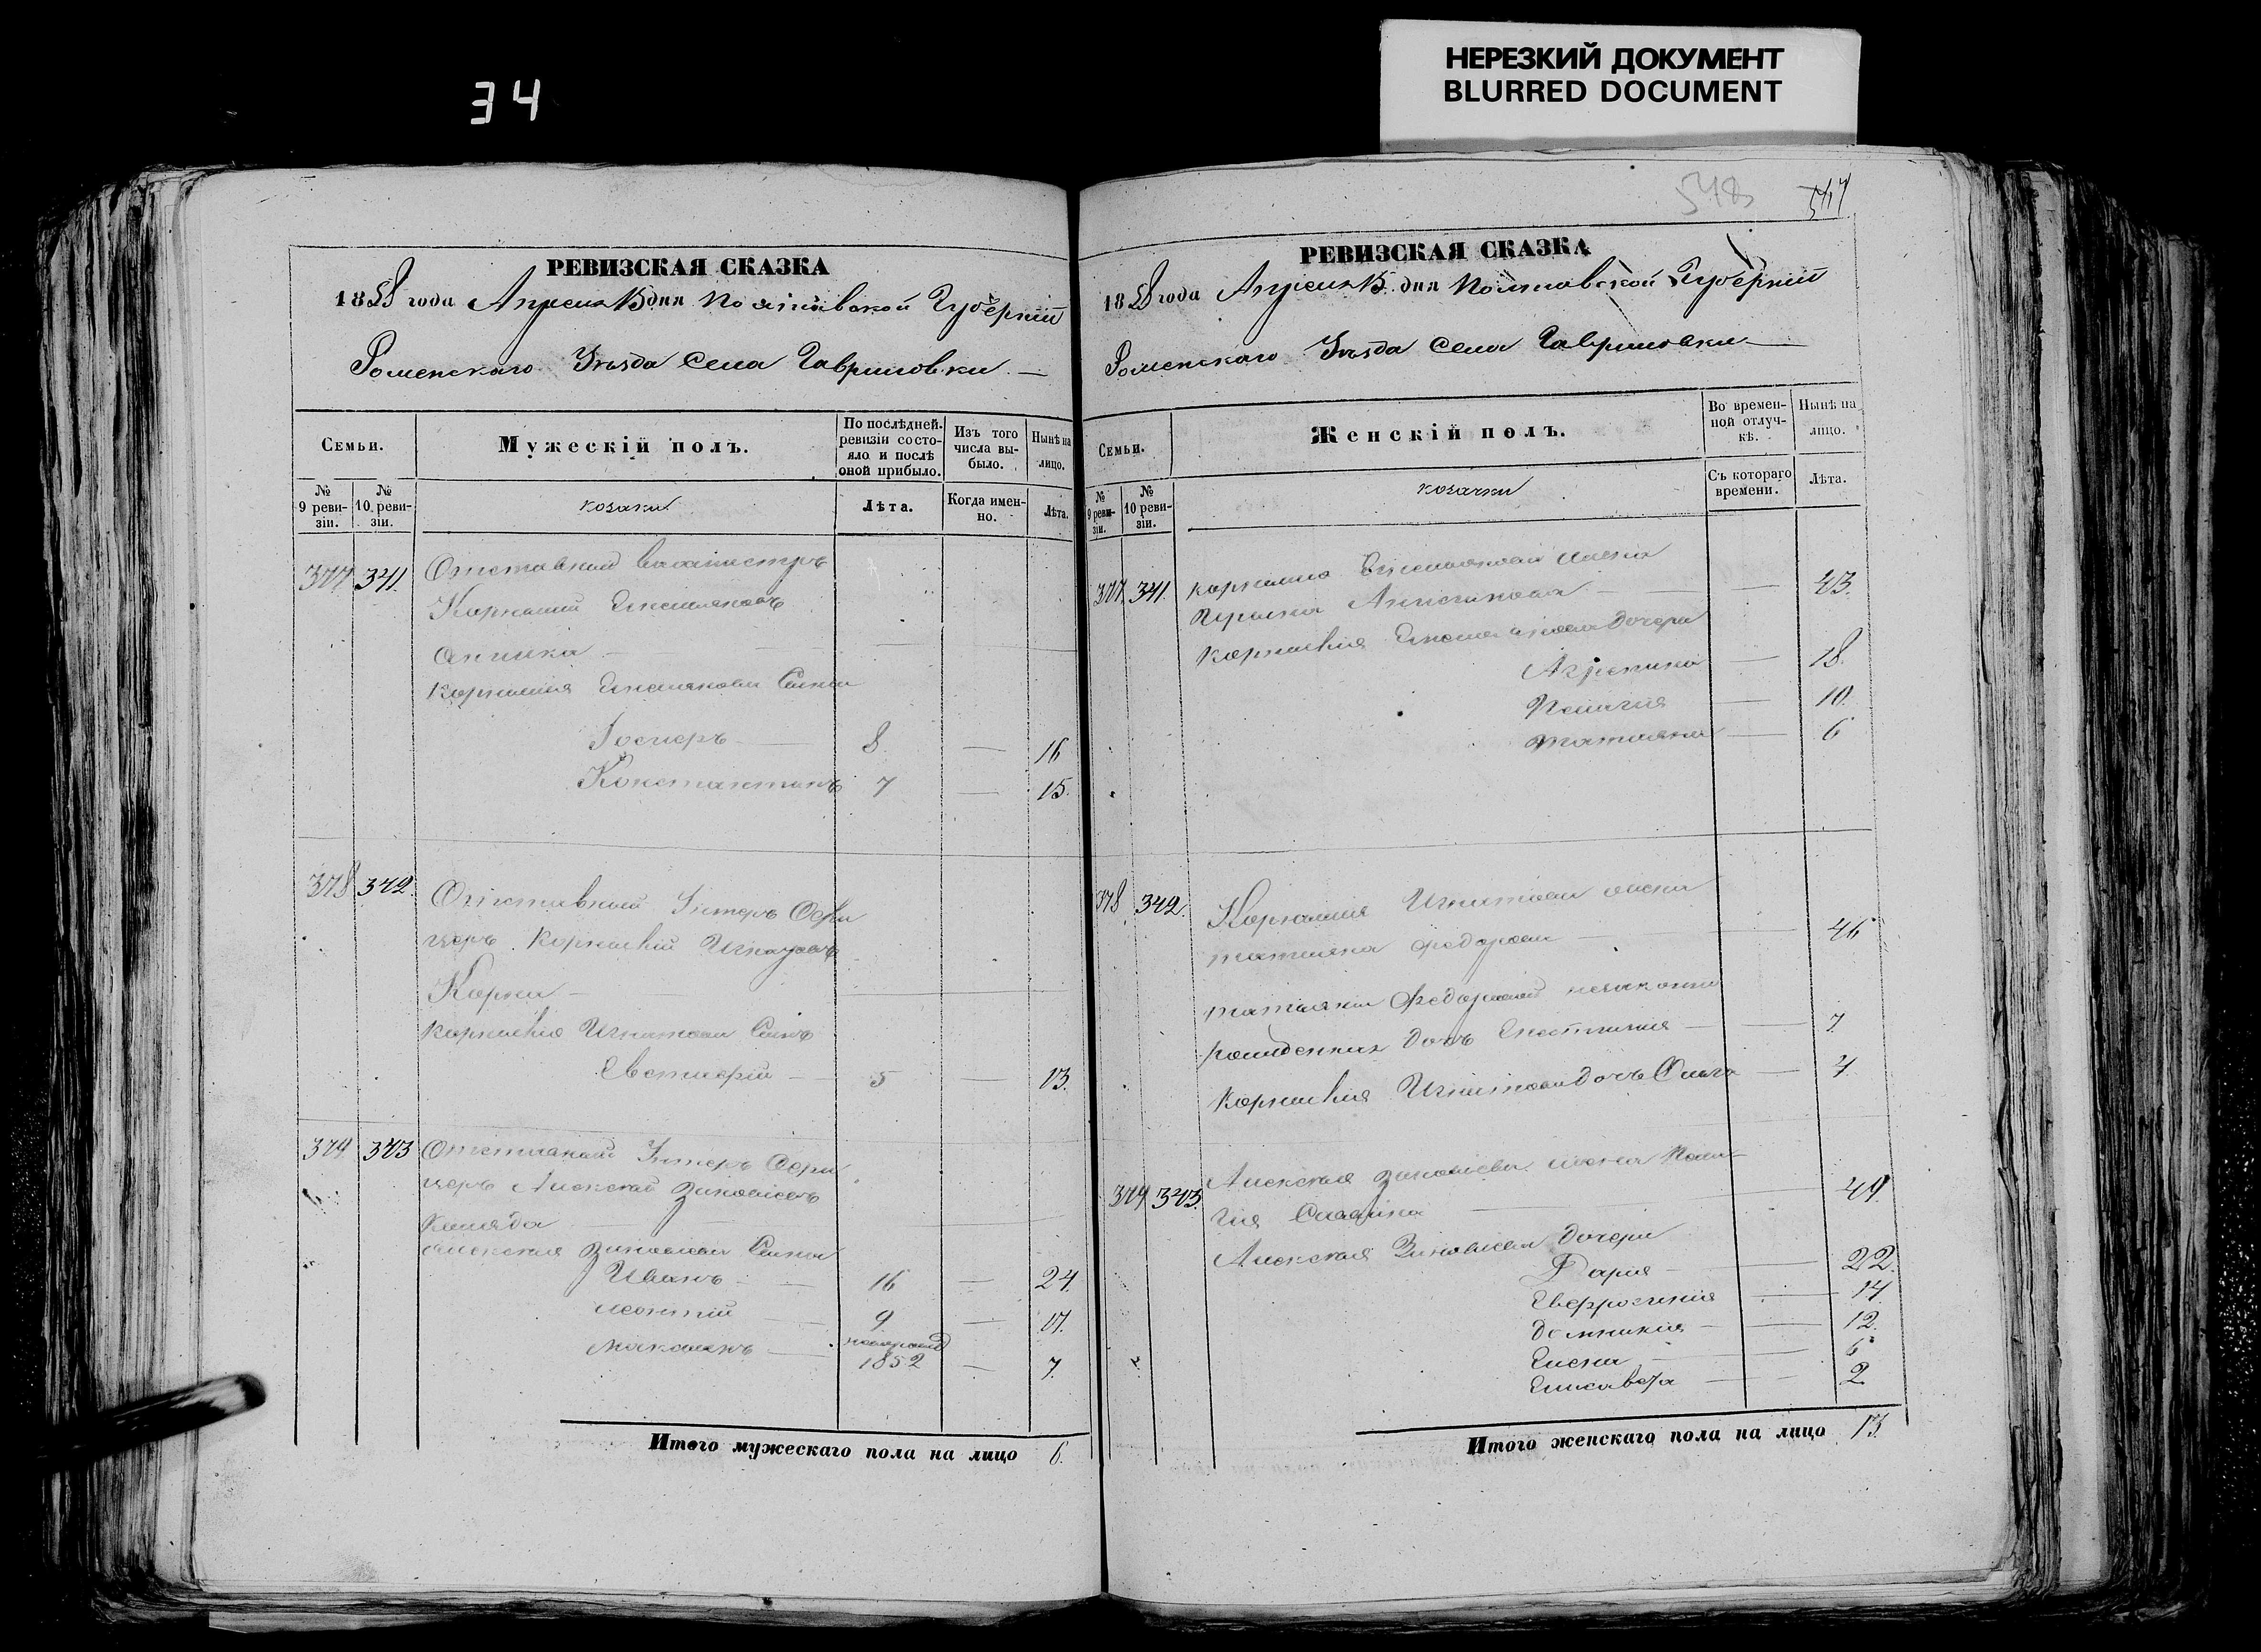 34
НЕРЕЗКИЙ ДОКУМЕНТ
BLURRED DOCUMENT
548 547
РЕВИЗСКАЯ СКАЗКА
1858 года Апреля 15 дня Полтавской Губерніи
Роменскаго Уѣзда Села Гавриловки
Семьи.
Мужескій полъ.
По послѣдней ревизіи состояло и послѣ оной прибыло.
Изъ того числа выбыло.
Нынѣ на лицо.
№ 9 ревизіи.
№ 10 ревизіи.
козаки
Лѣта.
Когда именно.
Лѣта.
377 341. Отставный вахмистръ
Корнилий Емельяновъ
Корнилия Емельянова Сыновя
8. — 16
Константинъ 7 — 15.
378 342. Отставный Унтеръ Офи
церъ Корнилій Игнатовъ
Корнилія Игнатова Сынъ
Евстафій — 5 13.
379 343 Отставный Унтеръ Офи
церъ Алексей Зиновіевъ
Коляда
Алексея Зиновіева Сыновя
Иванъ — 16 — 24
Леонтій — 9 — 17.
Максимъ — новорожд
1852 — 7.
Итого мужескаго пола на лицо 6.
РЕВИЗСКАЯ СКАЗКА
1858 года Апреля 15 дня Полтавской Губерніи
Роменскаго Уѣзда Села Гавриловки
Семьи.
Женскій полъ.
Во временной отлучкѣ.
Нынѣ на лицо.
№ 9 ревизіи.
№ 10 ревизіи.
козачки
Съ котораго времени.
Лѣта.
377. 341. Корнилия Емельянова жена
— 43.
Корнилія Емельянова дочери
Агрепина — 18.
Пелагия — 10.
Татьяна — 6
378 342. Корнилия Игнатова жена
Татьяна Федорова — 46
Татьяны Федоровой незаконно
рожденная дочь — 7.
Корнилия Игнатова дочь Ольга — 4.
379 343. Алексея Зиновіева жена Пела-
гия Саввина — 49.
Алексея Зиновіева дочери
Дария — 22.
Евфросиния — 14
Домникия — 12.
Елена — 6
Елисавета — 2
Итого женскаго пола на лицо 13.